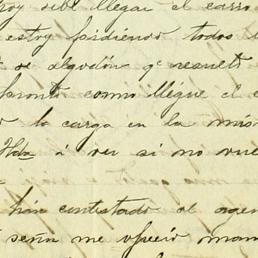 hoy debe llegar el carro
estoy perdiendo todos l
de algodón qe resuelt
pronto como llegue el c
la carga en la mis
Hda á ver si no vue
han contestado al agen
seña me ofreció man